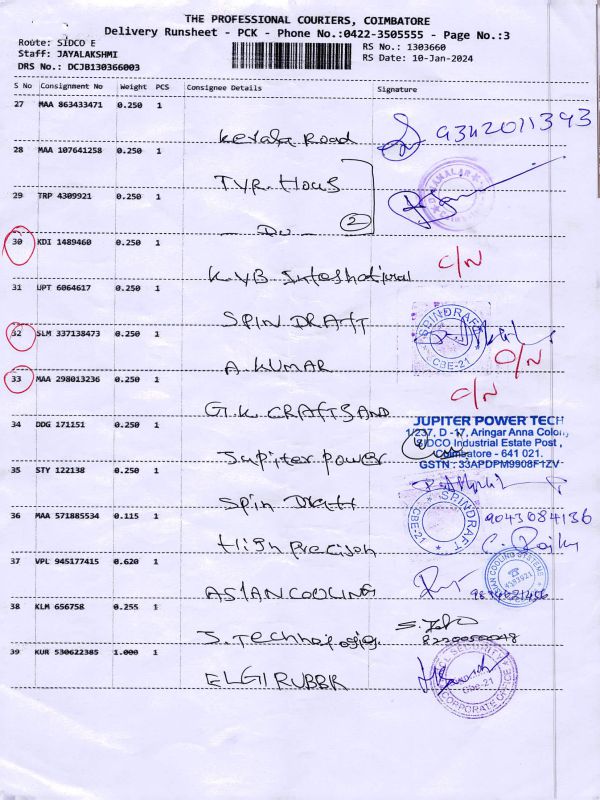 THE PROFESSIONAL COURIERS, COIMBATORE
Delivery Runsheet - PCK - Phone No.:0422-3505555 - Page No.:3
Route: SIDCO E
Staff: JAYALAKSHMI
DRS No.: DCJB130366003
RS No.: 1303660
RS Date: 10-Jan-2024
S No Consignment No Weight PCS Consignee Details Signature
27 MAA 863433471 0.250 1
Kerala Road 9342011393
28 MAA 107641258 0.250 1
T.V.R. Hous
29 TRP 4309921 0.250 1
- Do - 2
30 KDI 1489460 0.250 1
K.V.B International C/N
31 UPT 6064617 0.250 1
SPIN DRAFT SPINDRAFT
32 SLM 337138473 0.250 1
A. KUMAR CBE-21 O/N
33 MAA 298013236 0.250 1
G.K. CRAFTSAND C/N
34 DDG 171151 0.250 1
JUPITER POWER TECH
1/237, D -17, Aringar Anna Colony
SIDCO Industrial Estate Post,
Coimbatore - 641 021.
GSTN : 33APDPM9908F1ZV
Jupiter power
35 STY 122138 0.250 1
Spin Draft SPINDRAFT CBE-21
36 MAA 571885534 0.115 1 9043084136
High precison
37 VPL 945177415 0.620 1
ASIAN COOLING
38 KLM 656758 0.255 1
S. Technologies 8220050048
39 KUR 530622385 1.000 1
ELGI RUBBR SECURITY Cbe-21 CORPORATE OFFICE